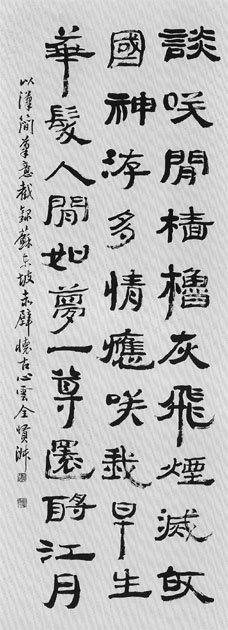 談咲間樯櫓灰飛煙滅故
國神游多情應咲我早生
華髮人間如夢一尊還酹江月
以漢簡筆意截録蘇東坡赤壁懷古心雲全賢